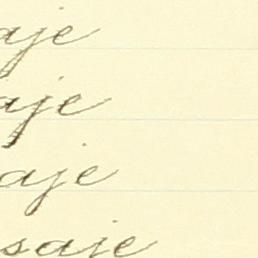 aje
aje
aje
saje